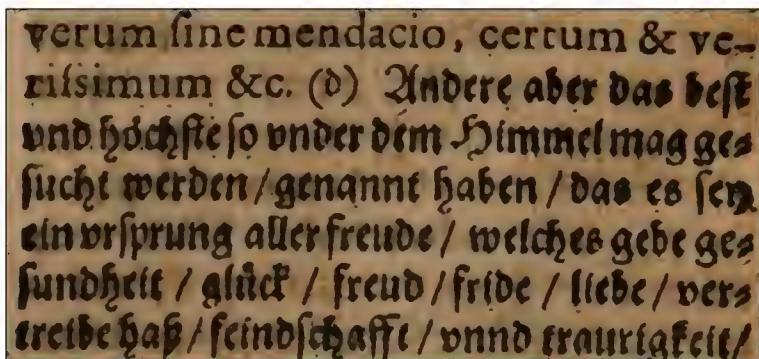 verum ſine mendacio, certum & ve-
riſsimum &c. (d) Andere aber das beſt
vnd höchſte ſo vnder dem Himmel mag ge-
ſucht werden / genannt haben / das es ſey
ein vrſprung aller freude / welches gebe ge-
ſundheit / glück / freud / fride / liebe / ver-
treibe haß / feindſchafft / vnnd traurigkeit /